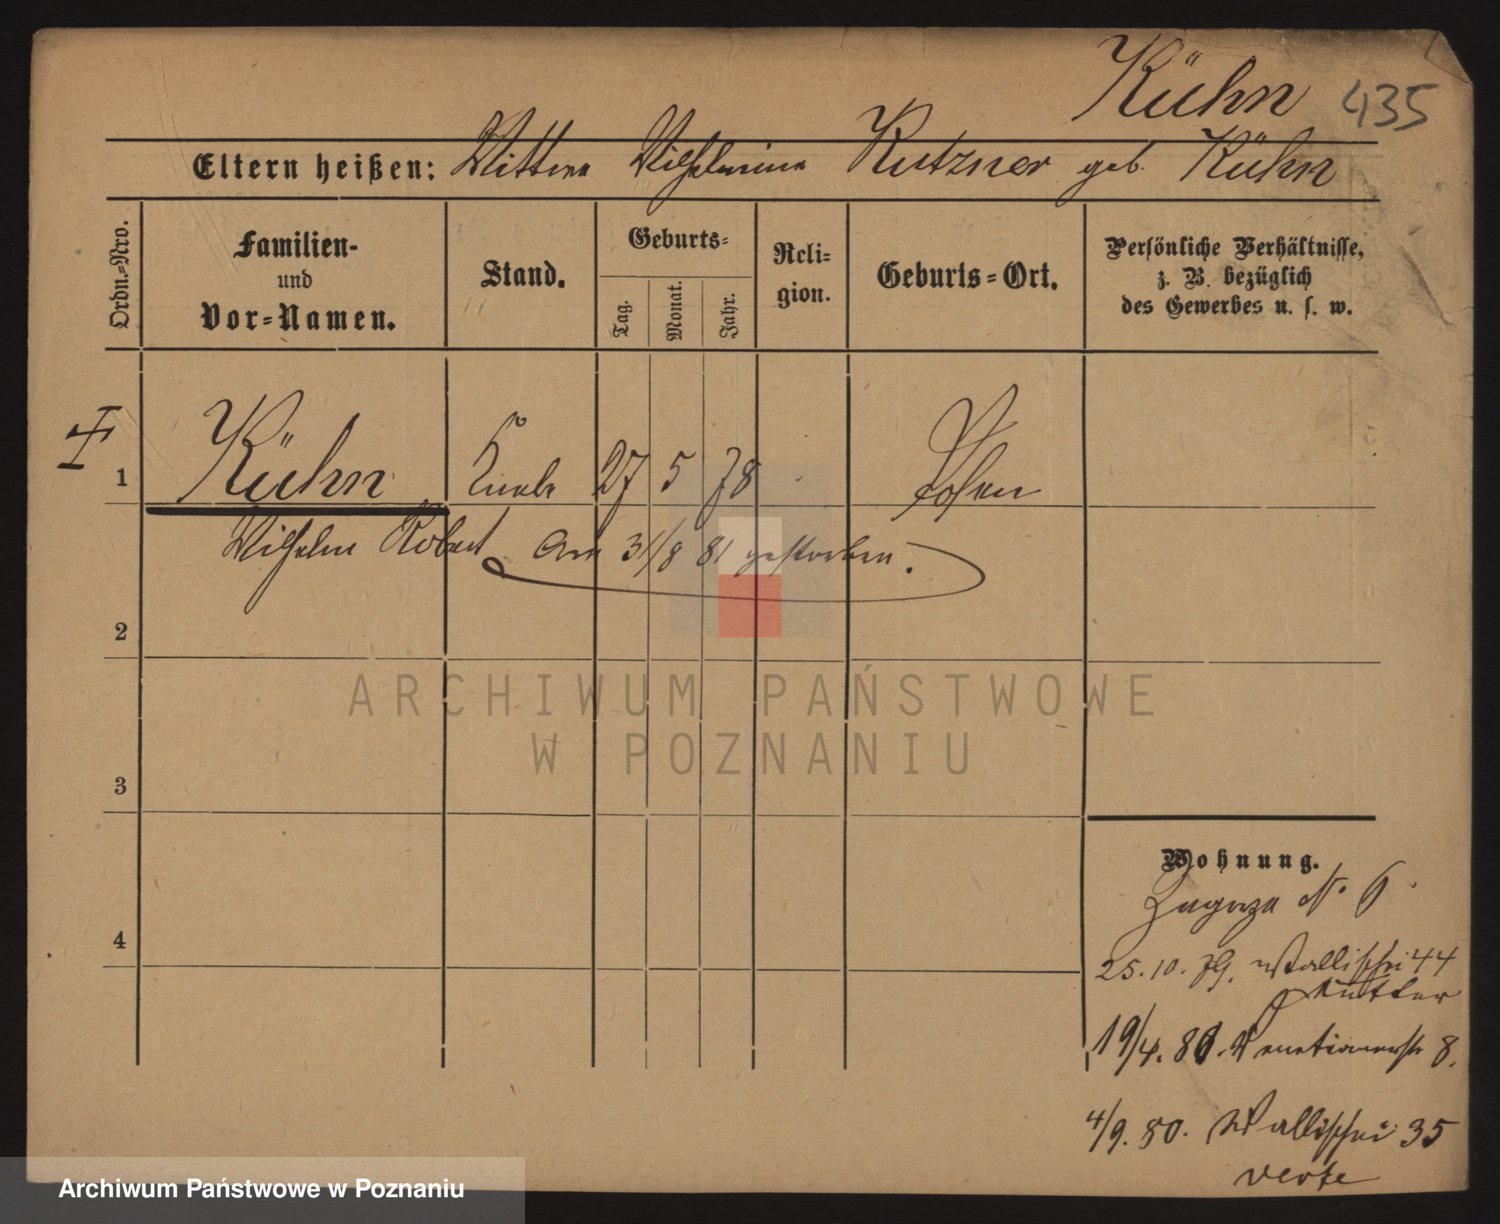 Kühn 435
Eltern heißen: Wittwe Wilhelmine Kutzner geb. Kühn
Ordn.=Nro.
Familien-
und
Vor=Namen.
Stand.
Geburts=
Tag.
Monat.
Jahr.
Reli=
gion.
Geburts=Ort.
Persönliche Verhältnisse,
z. B. bezüglich
des Gewerbes u. s. w.
1 Kühn Knabe 27 5 78 Posen
Wilhelm Robert Am 31/8 81 gestorben.
2
ARCHIWUM PAŃSTWOWE
W POZNANIU
3
4
Wohnung.
Zagorze No. 6
25.10.79. Wallischei 44
Mutter
19/4. 80. Venetianerstr 8.
4/9. 80. Wallischei 35
verte
Archiwum Państwowe w Poznaniu